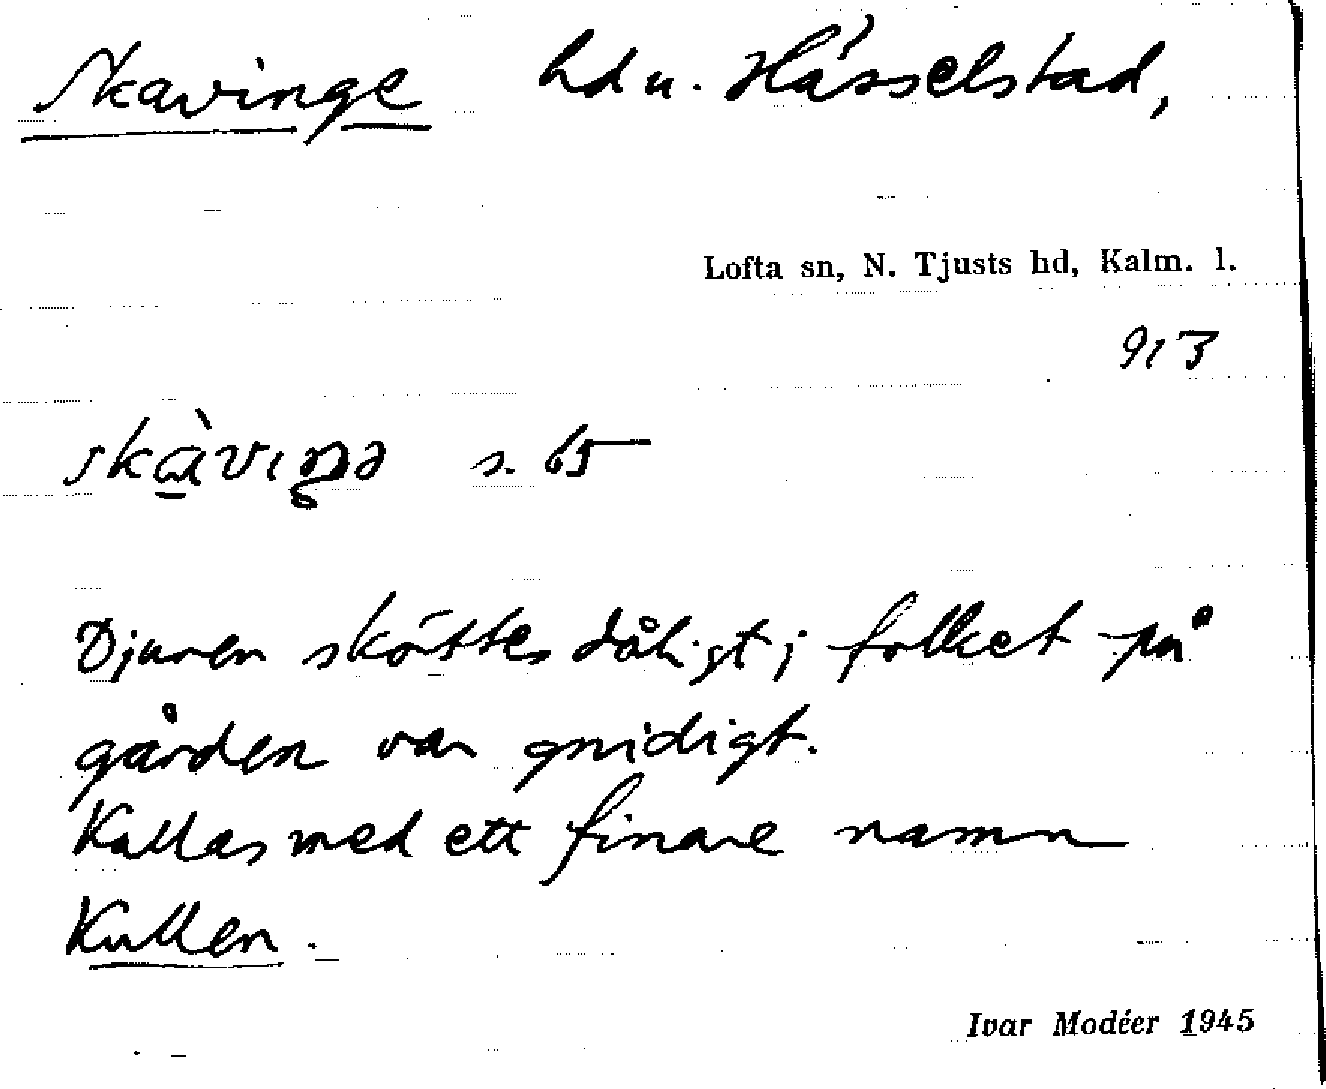 Skavinge hd u. Hässelstad,
Lofta sn, N. Tjusts hd, Kalm. l.
913
skàviŋə s. 65
Djuren sköttes dåligt; folket på
gården var gnidigt.
Kallas med ett finare namn
Kullen.
Ivar Modéer 1945